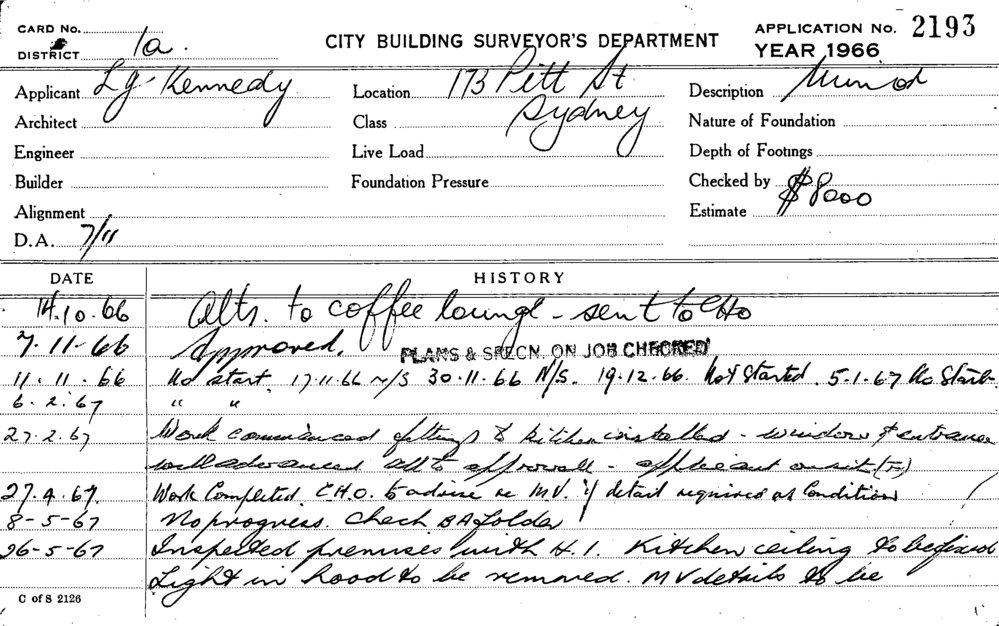 CARD No.
DISTRICT 1a.
CITY BUILDING SURVEYOR'S DEPARTMENT
APPLICATION No. 2193
YEAR 1966
Applicant Lg. Kennedy
Location 173 Pitt St
Sydney
Description Minor
Architect
Class
Nature of Foundation
Engineer
Live Load
Depth of Footings
Builder
Foundation Pressure
Checked by
Alignment
Estimate $8000
D.A. 7/11
DATE HISTORY
14.10.66 Alts. to coffee lounge - sent to CHO
7.11.66 Approved. PLANS & SPECN. ON JOB CHECKED
11.11.66 No start. 17.11.66 N/S 30.11.66 N/S. 19.12.66. Not Started. 5.1.67 No Start.
6.2.67 " "
27.2.67 Work commenced fittings & kitchen installed - window & entrance
well advanced all to approval - applicant on site
27.4.67. Work Completed. C.H.O. to advise re M.V. if detail required as Condition
8-5-67 No progress. Check BA folder
26-5-67 Inspected premises with H.I. Kitchen ceiling to be fixed
Light in hood to be removed. MV details to be
C of S 2126